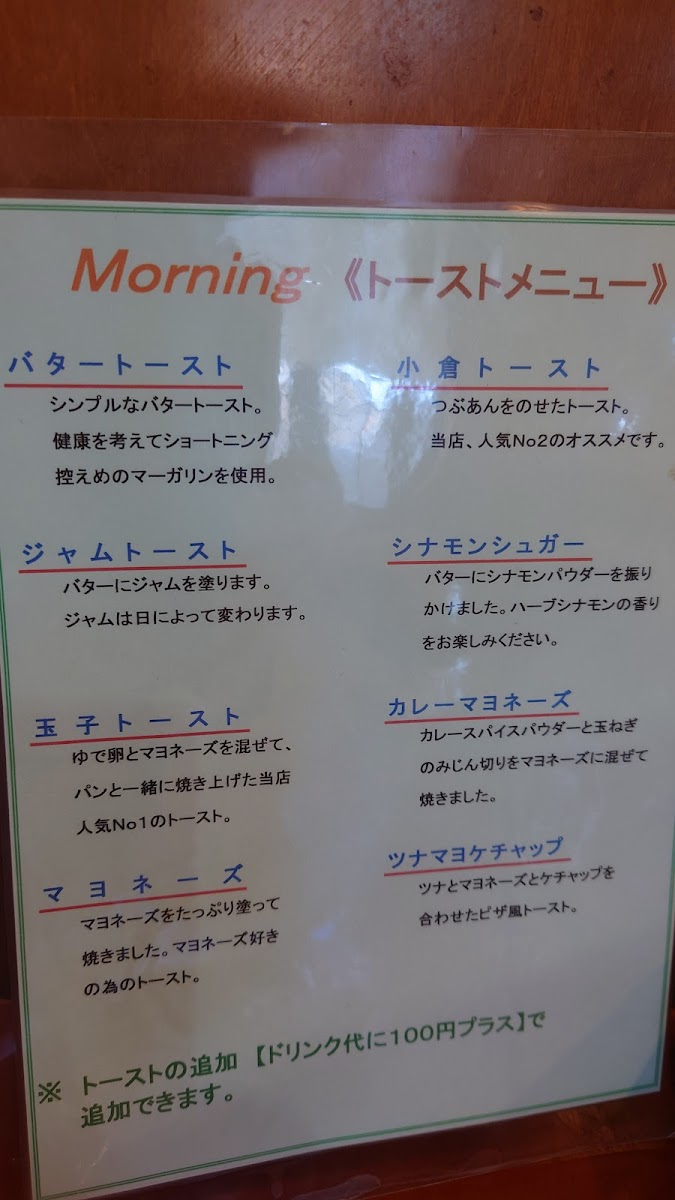 Morning 《トーストメニュー》
バタートースト
シンプルなバタートースト。
健康を考えてショートニング
控えめのマーガリンを使用。
ジャムトースト
バターにジャムを塗ります。
ジャムは日によって変わります。
玉子トースト
ゆで卵とマヨネーズを混ぜて、
パンと一緒に焼き上げた当店
人気No1のトースト。
マヨネーズ
マヨネーズをたっぷり塗って
焼きました。マヨネーズ好き
の為のトースト。
小倉トースト
つぶあんをのせたトースト。
当店、人気No2のオススメです。
シナモンシュガー
バターにシナモンパウダーを振り
かけました。ハーブシナモンの香り
をお楽しみください。
カレーマヨネーズ
カレースパイスパウダーと玉ねぎ
のみじん切りをマヨネーズに混ぜて
焼きました。
ツナマヨケチャップ
ツナとマヨネーズとケチャップを
合わせたピザ風トースト。
※ トーストの追加 【ドリンク代に100円プラス】で
追加できます。